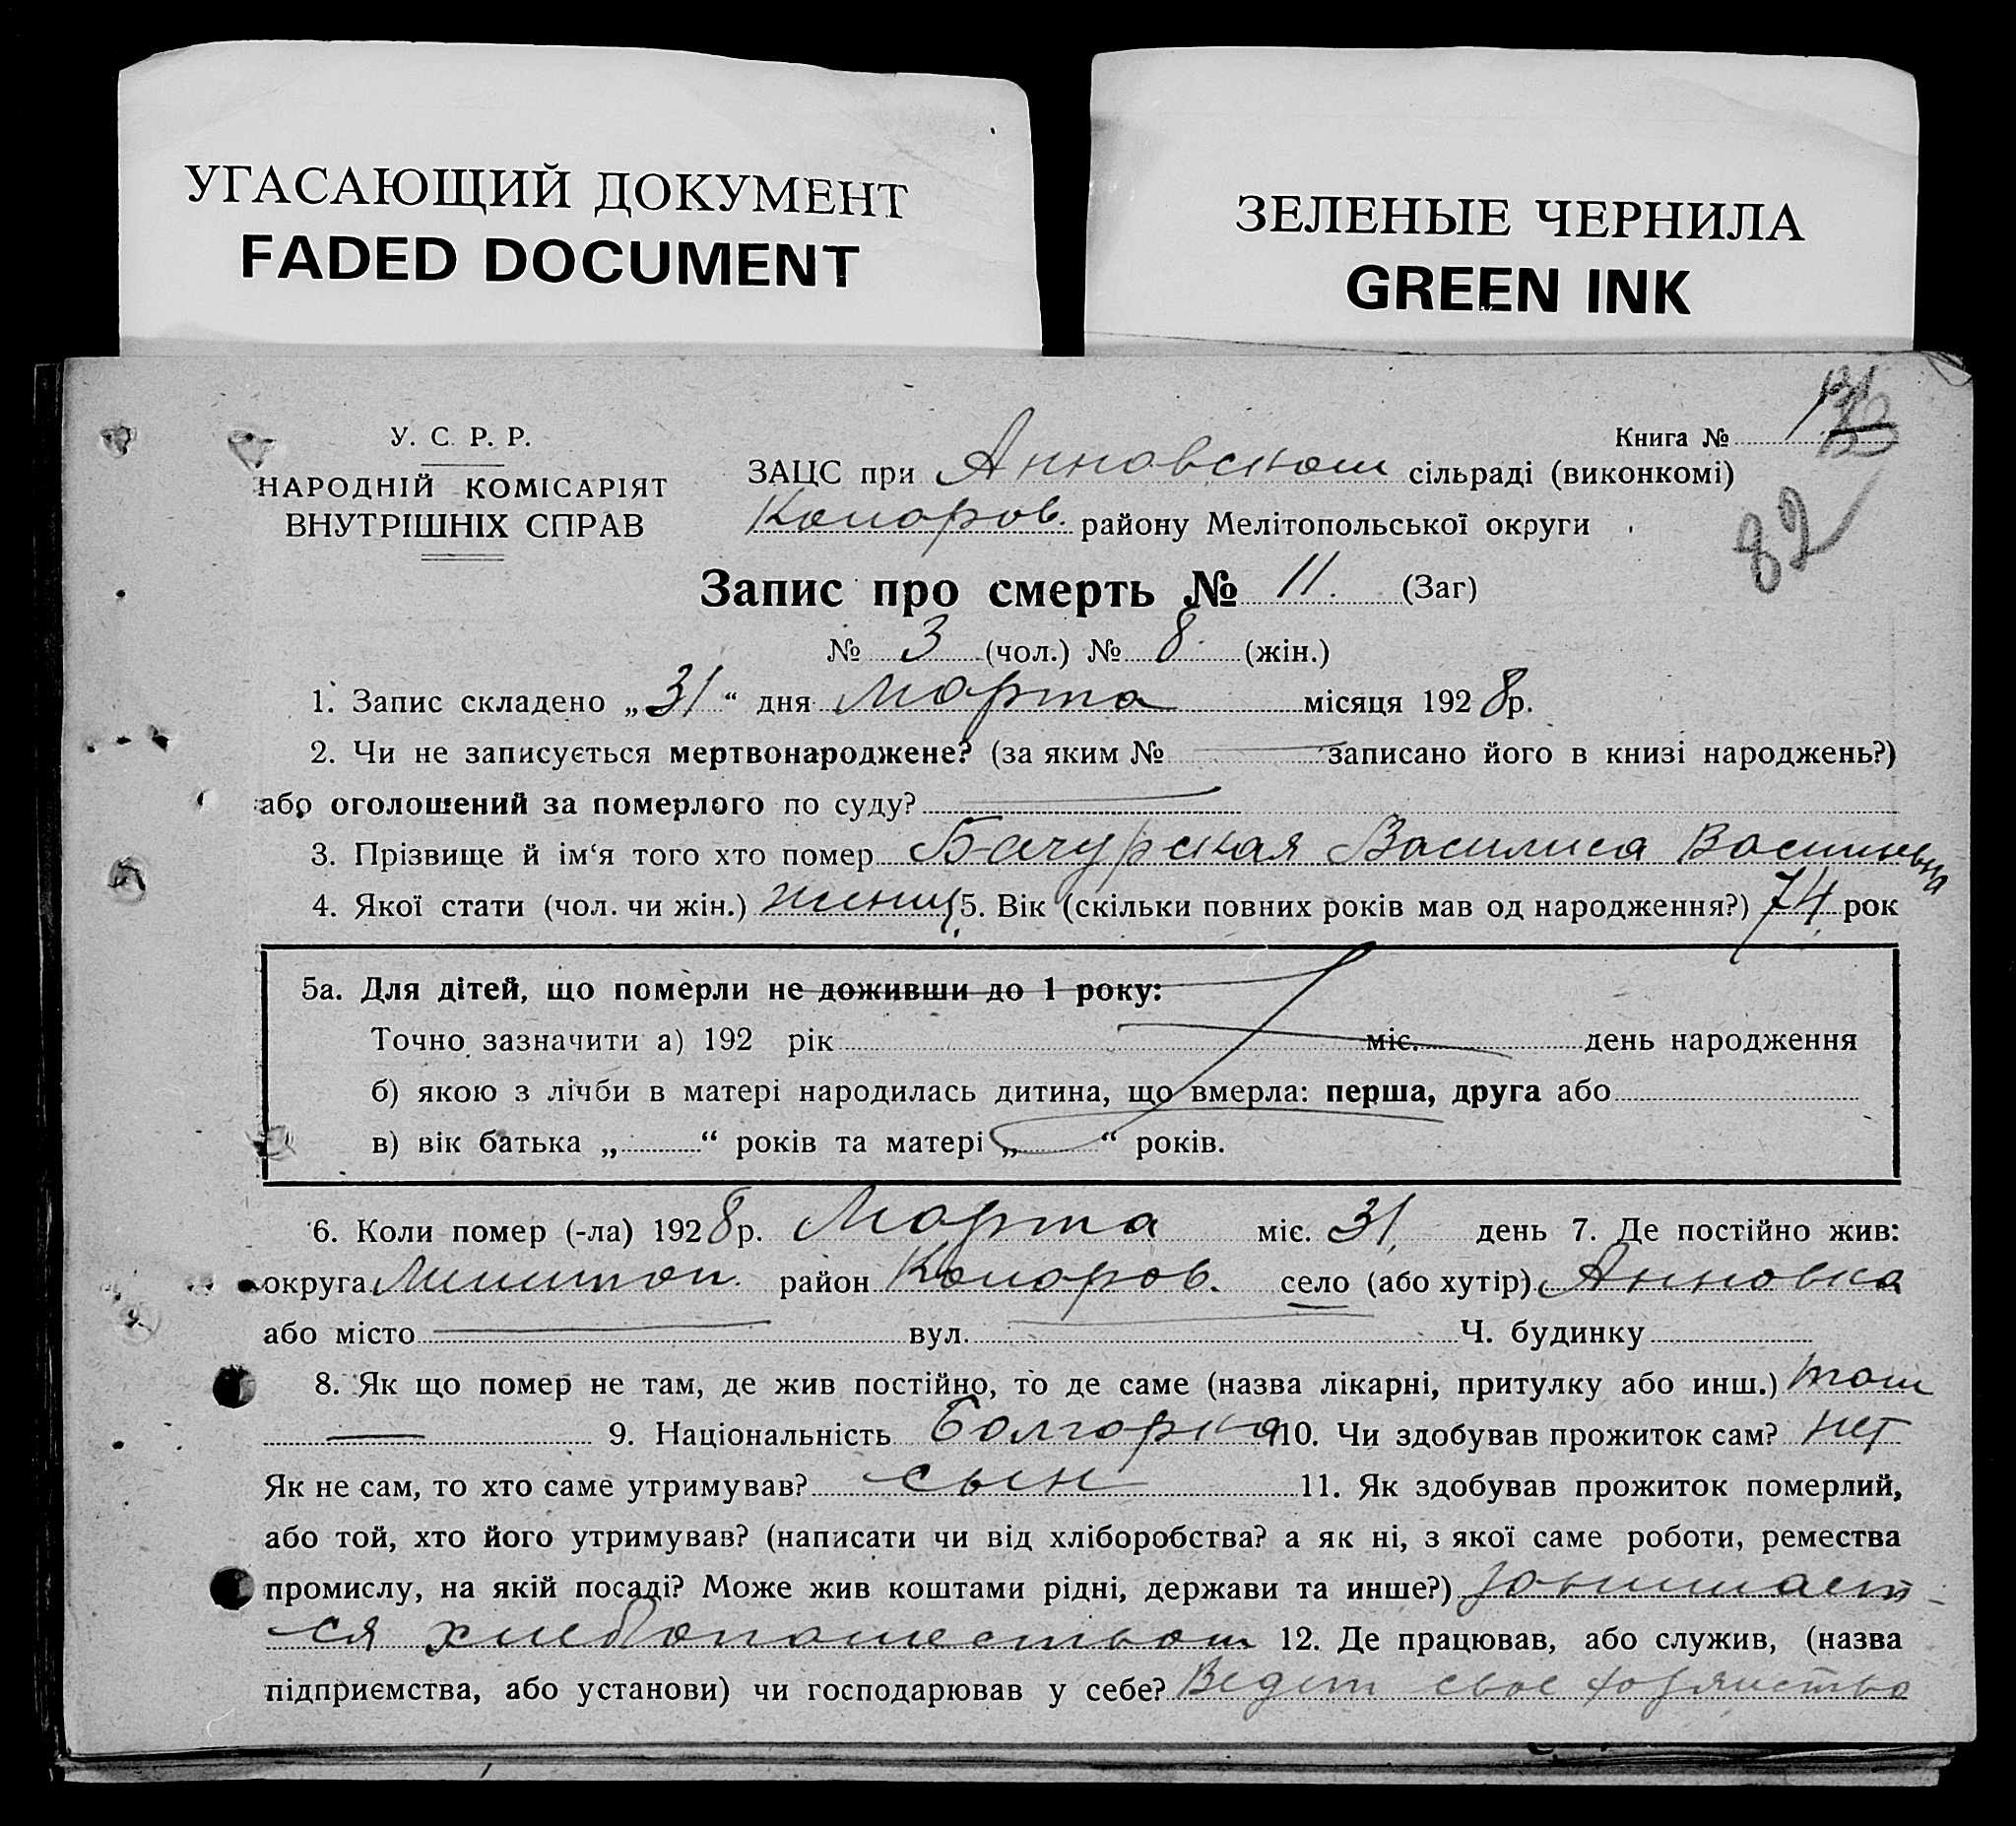 УГАСАЮЩИЙ ДОКУМЕНТ
FADED DOCUMENT
ЗЕЛЕНЫЕ ЧЕРНИЛА
GREEN INK
У. С. Р. Р.
НАРОДНІЙ КОМІСАРІЯТ
ВНУТРІШНІХ СПРАВ
Книга №
82
ЗАЦС при Анновском сільраді (виконкомі)
району Мелітопольської округи
Запис про смерть № 11. (Заг)
№ 3 (чол.) № 8 (жін.)
1. Запис складено „31“ дня Марта місяця 1928р.
2. Чи не записується мертвонароджене? (за яким № записано його в книзі народжень?)
або оголошений за померлого по суду?
3. Прізвище й ім‘я того хто помер Бачурская Василиса Васильевна
4. Якої стати (чол. чи жін.) женщ. 5. Вік (скільки повних років мав од народження?) 74 рок
5а. Для дітей, що померли не доживши до 1 року:
Точно зазначити а) 192 рік міс. день народження
б) якою з лічби в матері народилась дитина, що вмерла: перша, друга або
в) вік батька „ “ років та матері „ “ років.
6. Коли помер (-ла) 1928р. Марта міс. 31, день 7. Де постійно жив:
округа Мелитоп. район село (або хутір) Анновка
або місто вул. Ч. будинку
8. Як що помер не там, де жив постійно, то де саме (назва лікарні, притулку або инш.) там
9. Національність Болгарка 10. Чи здобував прожиток сам? нет
Як не сам, то хто саме утримував? сын 11. Як здобував прожиток померлий,
або той, хто його утримував? (написати чи від хліборобства? а як ні, з якої саме роботи, ремества
промислу, на якій посаді? Може жив коштами рідні, держави та инше?) занимает-
ся хлебопашеством 12. Де працював, або служив, (назва
підприємства, або установи) чи господарював у себе? Ведет свое хозяйство